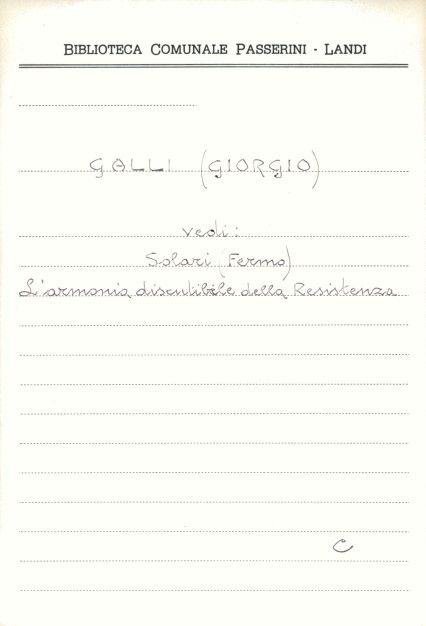 BIBLIOTECA COMUNALE PASSERINI - LANDI
GALLI (GIORGIO)
vedi:
Solari (Fermo)
L'armonia discutibile della Resistenza
C